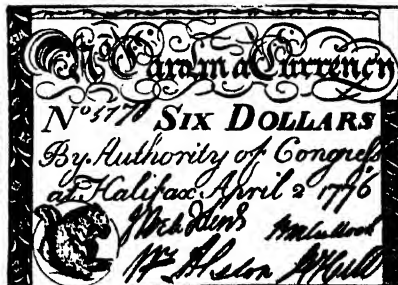 No Carolina Currency
No 5770 SIX DOLLARS
By Authority of Congress
at Halifax April 2 1776